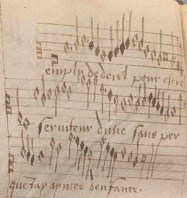 emplis de deul pour estre
serviteur d'une sans per
que tay aymee d'enfance.